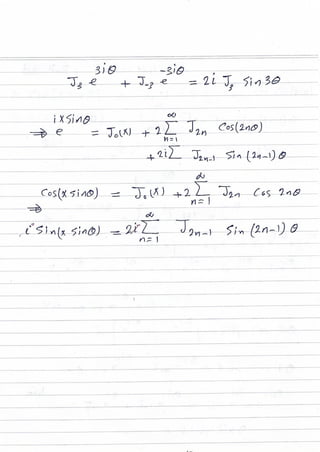 J₃ e^{3iθ} + J₋₃ e^{-3iθ} = 2i J₃ Sin 3θ
⇒ e^{ixSinθ} = J₀(x) + 2 ∑_{n=1}^{∞} J₂ₙ Cos(2nθ)
+ 2i ∑ J₂ₙ₋₁ Sin (2n-1)θ
Cos(x Sinθ) = J₀(x) + 2 ∑_{n=1}^{∞} J₂ₙ Cos 2nθ
⇒
i Sin(x Sinθ) = 2i ∑_{n=1}^{∞} J₂ₙ₋₁ Sin (2n-1) θ